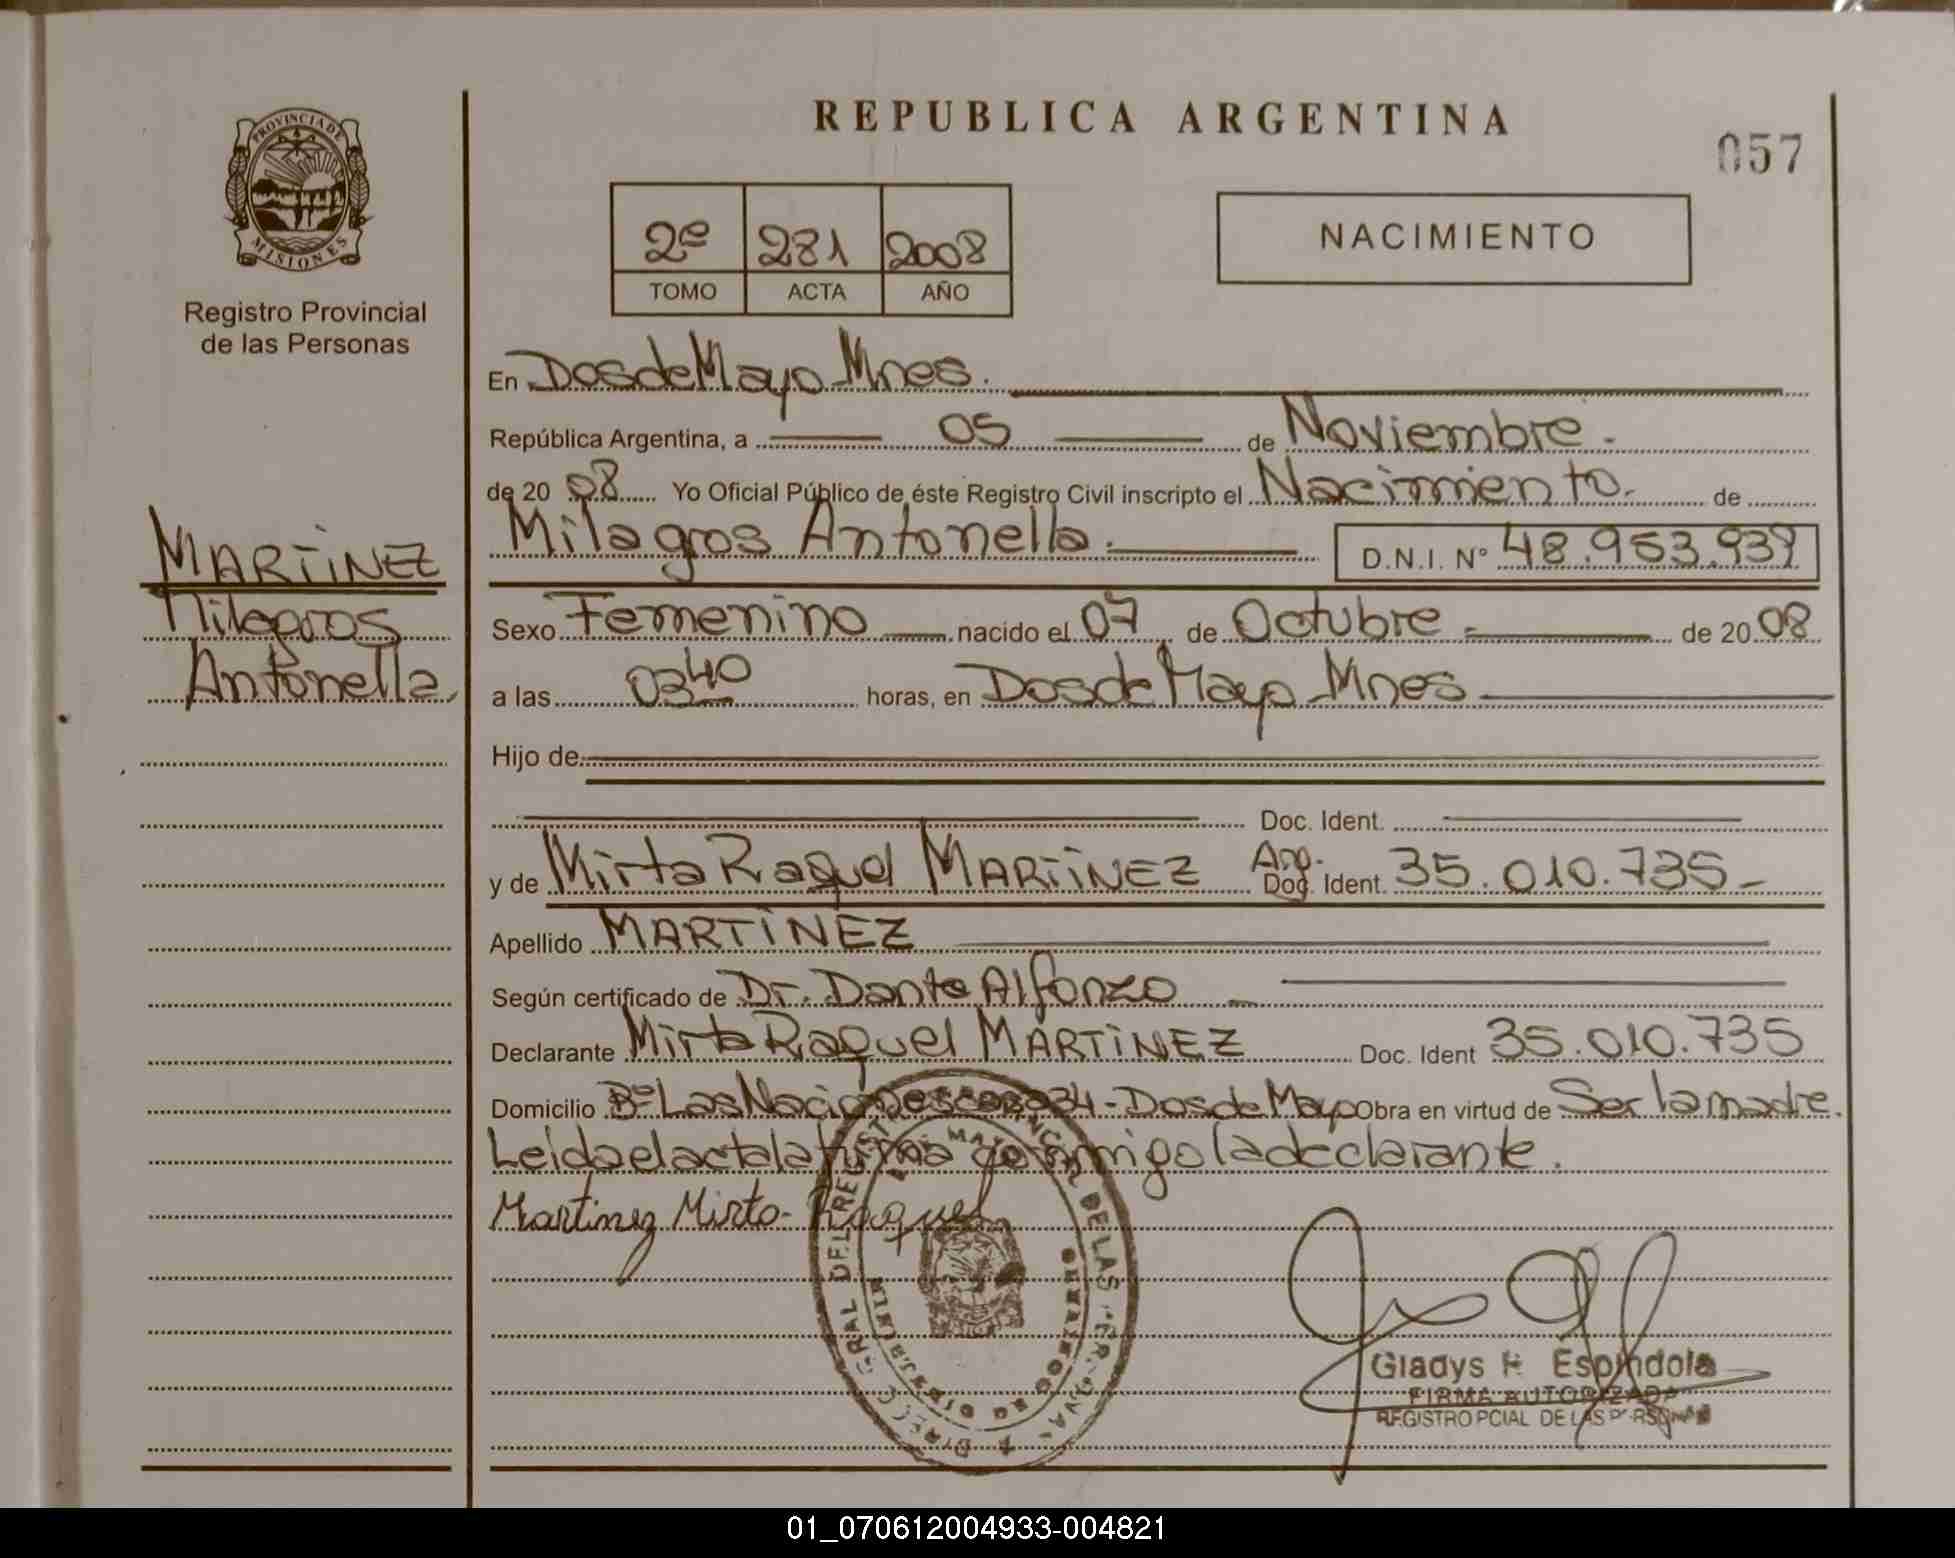 REPUBLICA ARGENTINA
057
PROVINCIA DE
MISIONES
Registro Provincial
de las Personas
2º 281 2008
TOMO ACTA AÑO
NACIMIENTO
En Dos de Mayo Mnes.
República Argentina, a 05 de Noviembre.
de 20 08 Yo Oficial Público de éste Registro Civil inscripto el Nacimiento. de
Milagros Antonella. D.N.I. Nº 48.953.939
MARTiNEZ
Milagros
Antonella.
Sexo Femenino nacido el 07 de Octubre de 20 08
a las 03 40 horas, en Dos de Mayo Mnes
Hijo de
Doc. Ident.
y de Mirta Raquel MARTiNEZ Arg. Doc. Ident. 35.010.735
Apellido MARTiNEZ
Según certificado de Dr. Dante Alfonzo
Declarante Mirta Raquel MARTiNEZ Doc. Ident 35.010.735
Domicilio Bº Las Naciones casa 34 - Dos de Mayo Obra en virtud de Ser la madre.
Leida el acta la firma conmigo la declarante.
Martinez Mirta Raquel
Gladys Espindola
FIRMA AUTORIZADA
REGISTRO PCIAL DE LAS PERSONAS
01_070612004933-004821